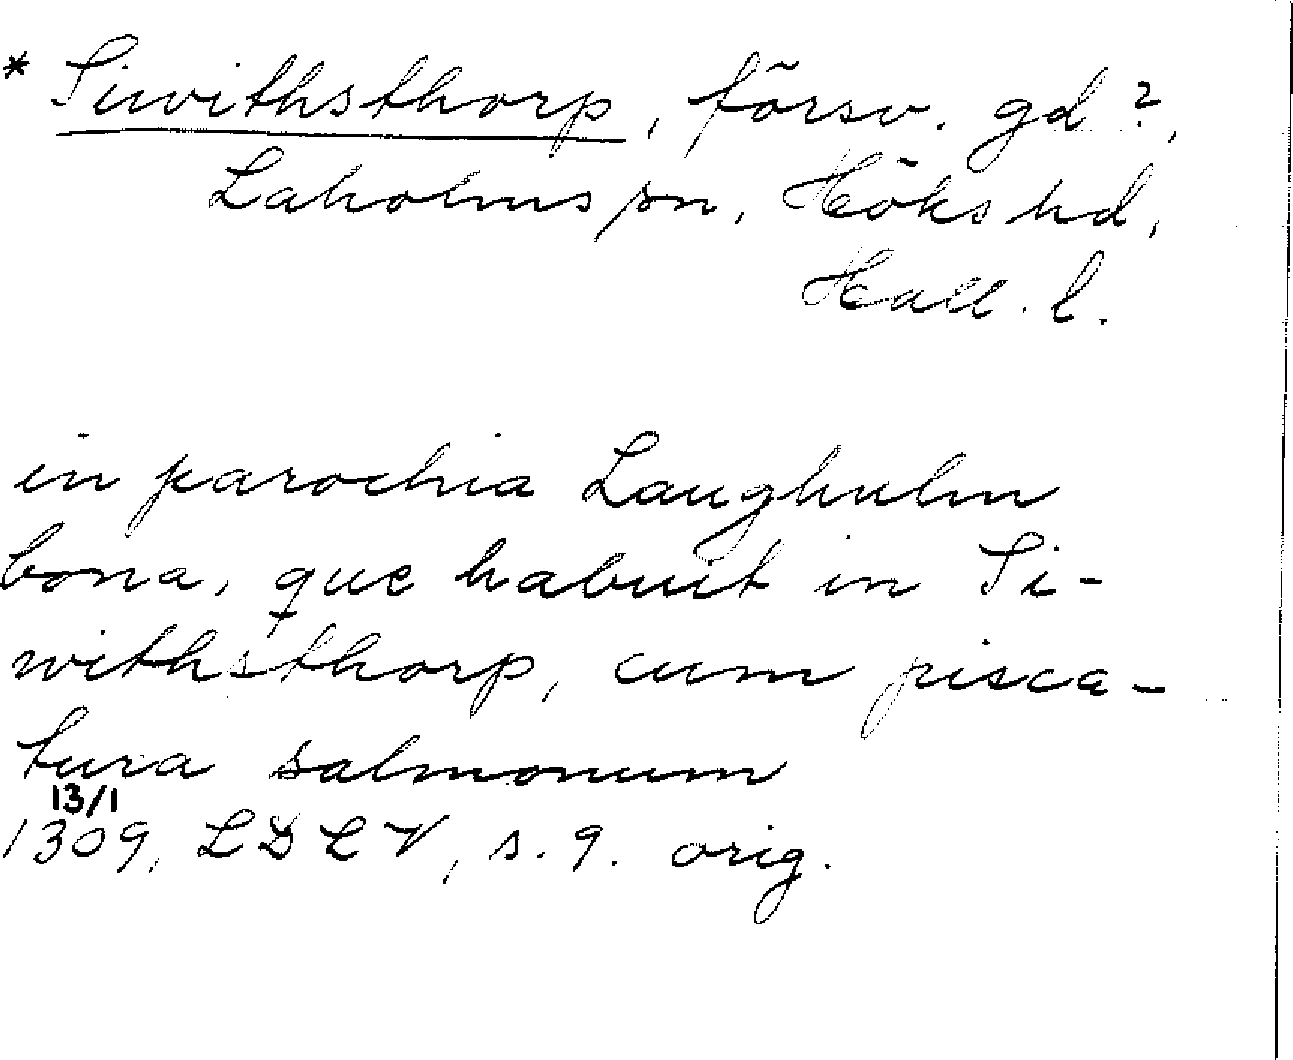 * Siwithsthorp, försv. gd?,
Laholms sn, Höks hd,
Hall. l.
in parochia Laughulm
bona, que habuit in Si-
withsthorp, cum pisca-
tura salmonum
13/1
1309, LDLV, s. 9. orig.